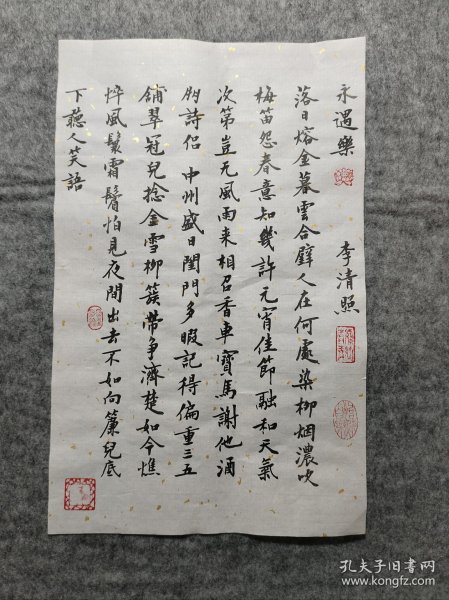 永遇樂 李清照
落日熔金暮雲合璧人在何處染柳烟濃吹
梅笛怨春意知幾許元宵佳節融和天氣
次第豈无風雨来相召香車寶馬謝他酒
朋詩侣 中州盛日閨門多暇記得偏重三五
鋪翠冠兒捻金雪柳簇帶争濟楚如今憔
悴風鬟霜鬢怕見夜間出去不如向簾兒底
下聽人笑語
孔夫子旧书网
www.kongfz.com